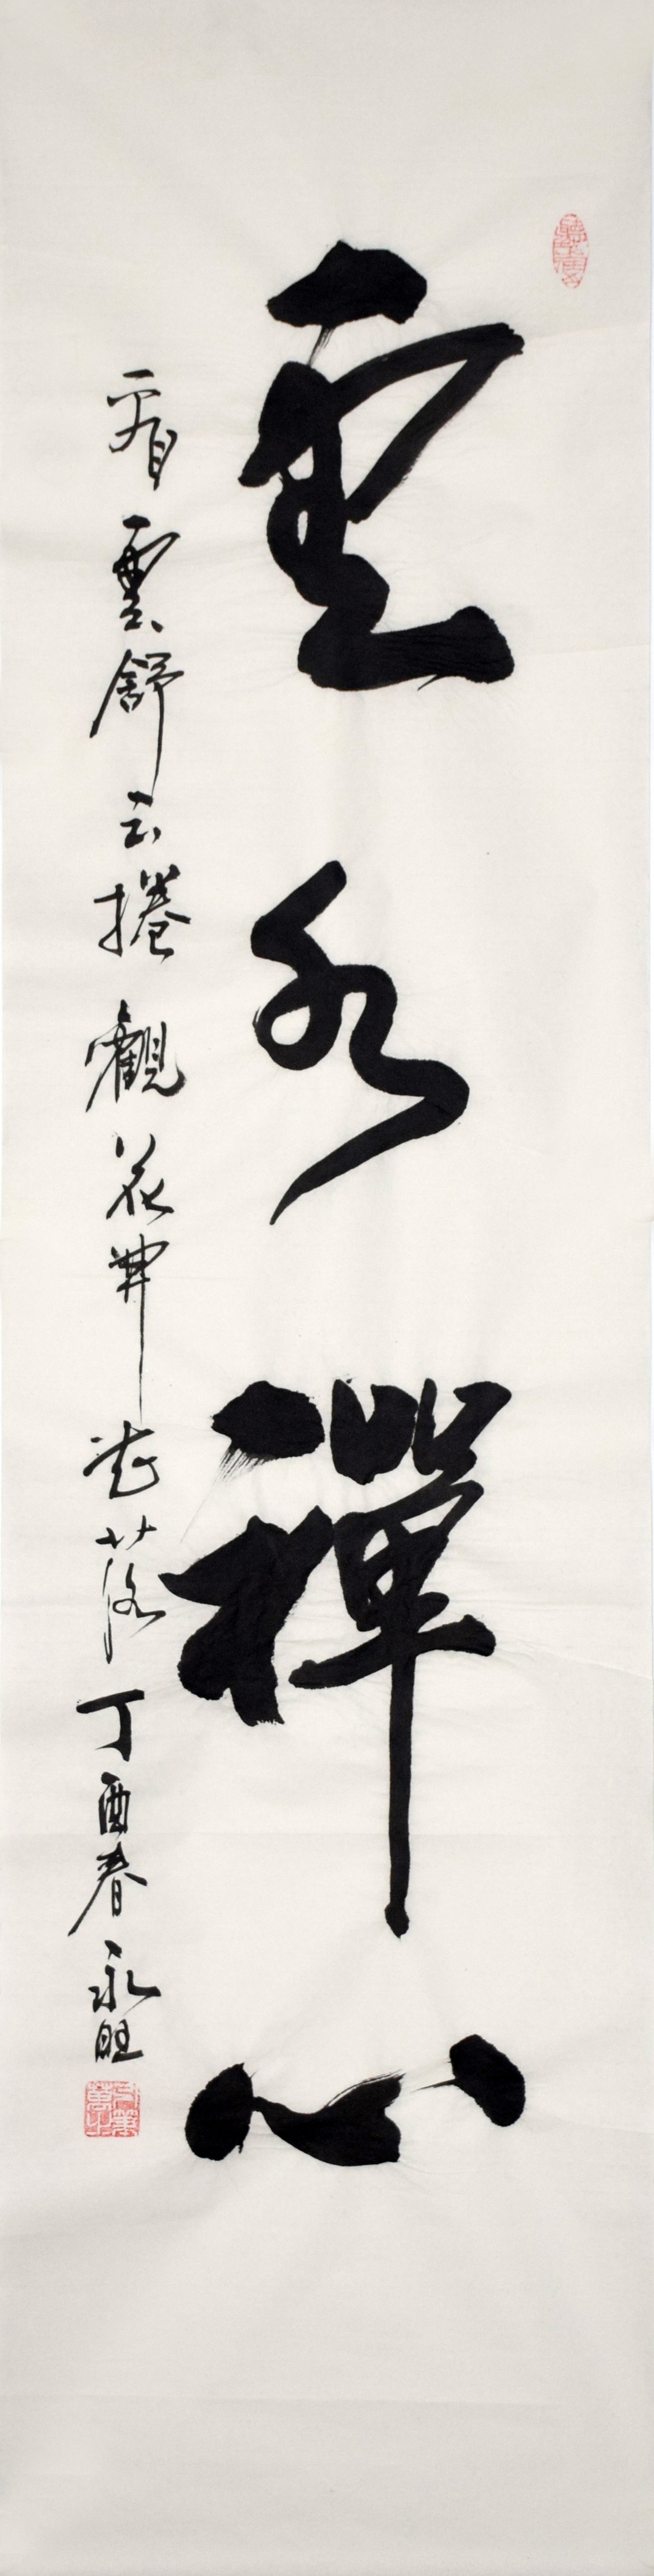 雲水禪心
看雲舒云捲觀花開花落丁酉春永旺